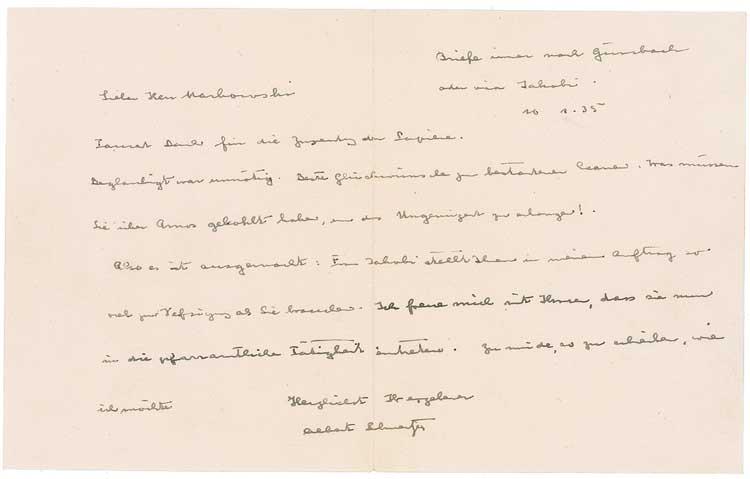 Briefe immer nach Günsbach
oder via Jakobi.
10 1.35
Lieber Herr Markowski
Tausend Dank für die Zusendung der Papiere.
Beglaubigt war unnötig. Beste Glückwünsche zu bestandener Examen. Was müssen
Sie über Amos gekohlt haben, um das zu erlangen!
Also es ist ausgemacht: Frau Jakobi stellt Ihnen in meinem Auftrag so
viel zur Verfügung als Sie brauchen. Ich freue mich mit Ihnen, dass sie nun
in die pfarramtliche Tätigkeit eintreten. Zu müde, so zu arbeiten, wie
ich möchte
Herzlichst Ihr ergebener
Albert Schweitzer